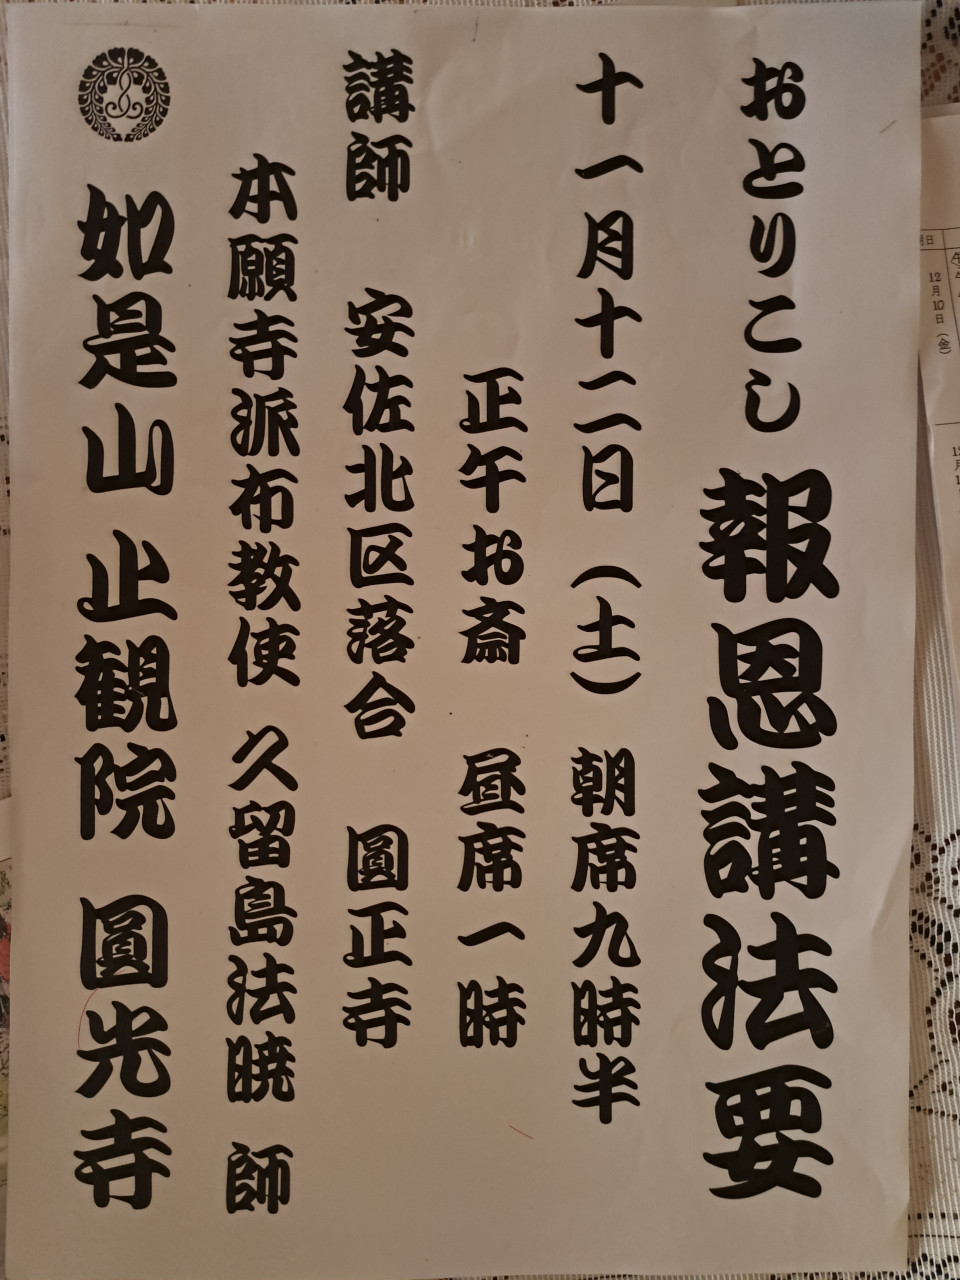 おとりこし 報恩講法要
十一月十二日（土） 朝席九時半
正午お斎 昼席一時
講師 安佐北区落合 圓正寺
本願寺派布教使 久留島法暁 師
如是山 止観院 圓光寺
月日
12月10日（金）